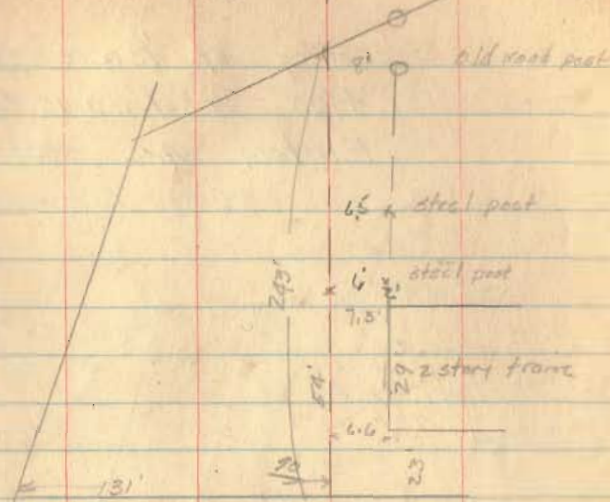 8' old wood post
6.5' steel post
6' steel post
2'
7.5'
243'
54'
29' 2 story frame
6.6'
23'
90
131'